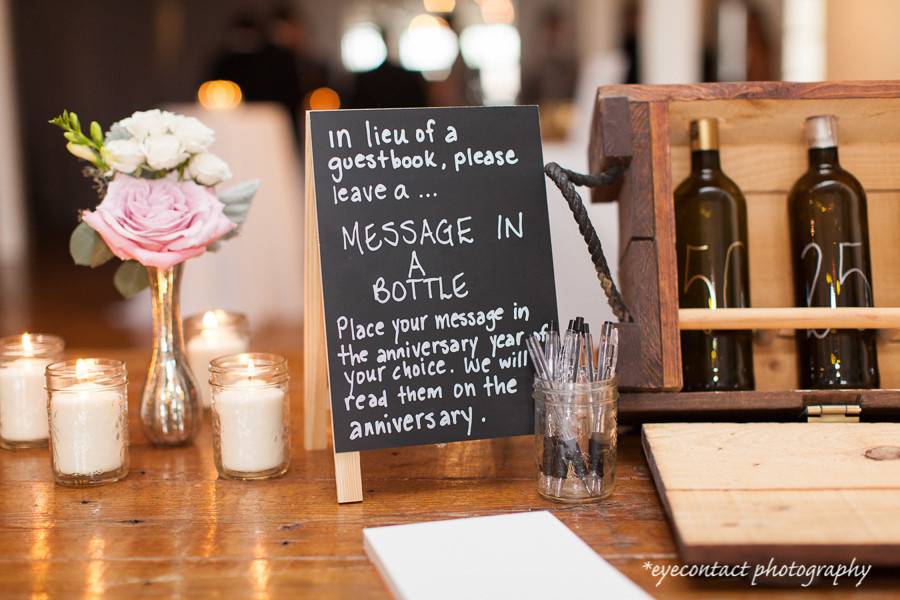 in lieu of a
guestbook, please
leave a ...
MESSAGE IN
A
BOTTLE
Place your message in
the anniversary year of
your choice. We will
read them on the
anniversary.
50
25
*eyecontact photography